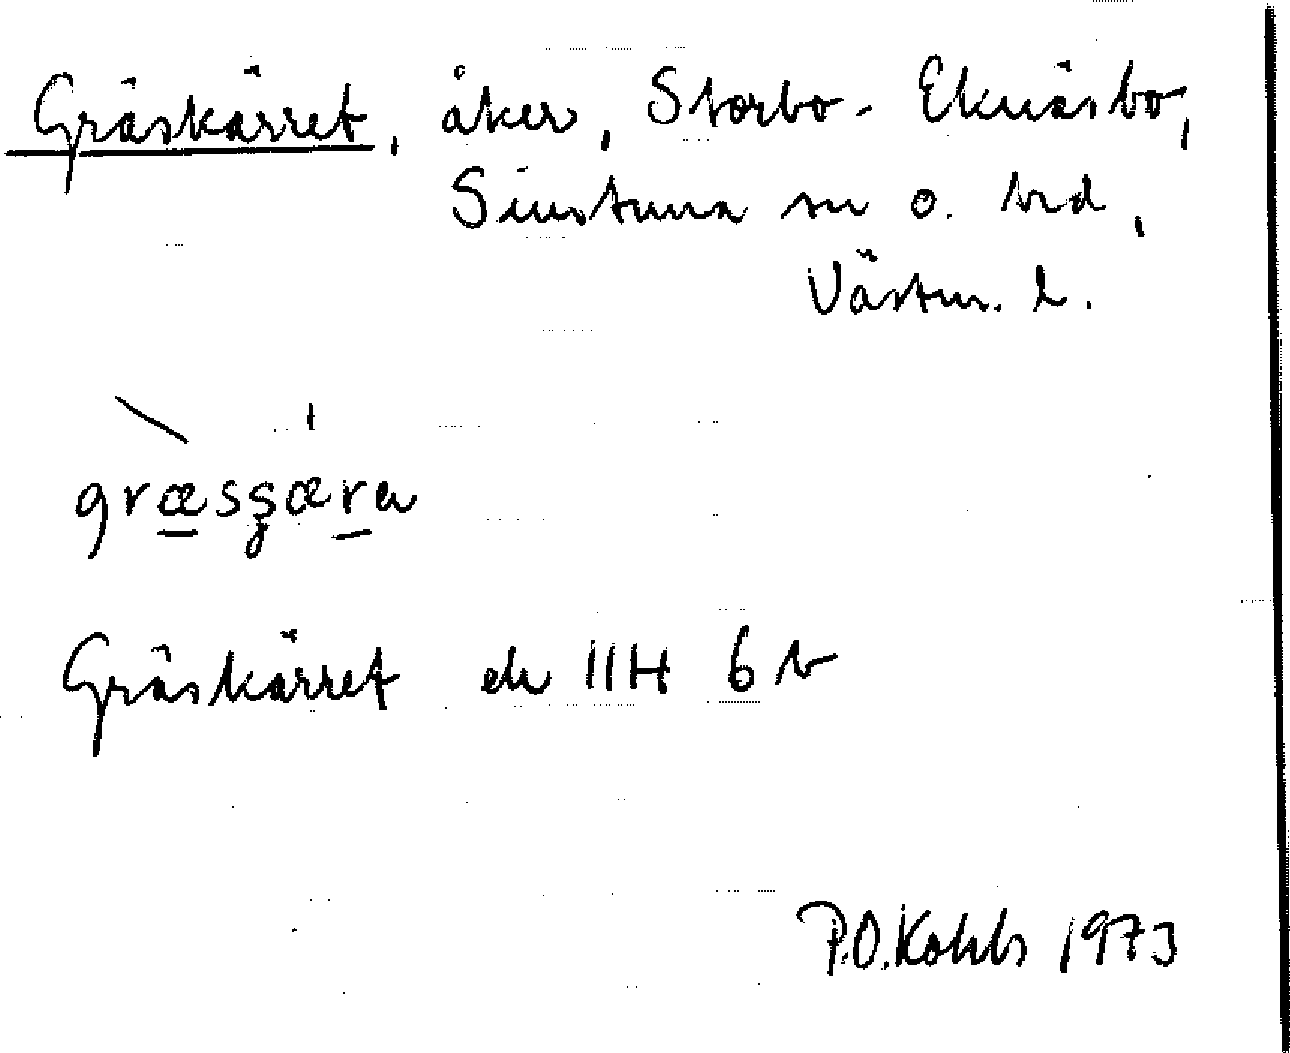 Gräskärret, åker, Storbo - Eknäsbo,
Simtuna sn o. hrd,
Västm. l.
græsgæra
Gräskärret ek 11H 6 b
P.O. Kohls 1973